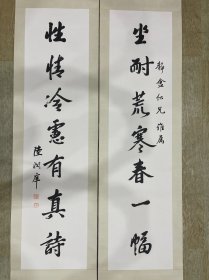 坐耐荒寒春一幅
静盦仁兄雅属
性情冷處有真詩
陸潤庠